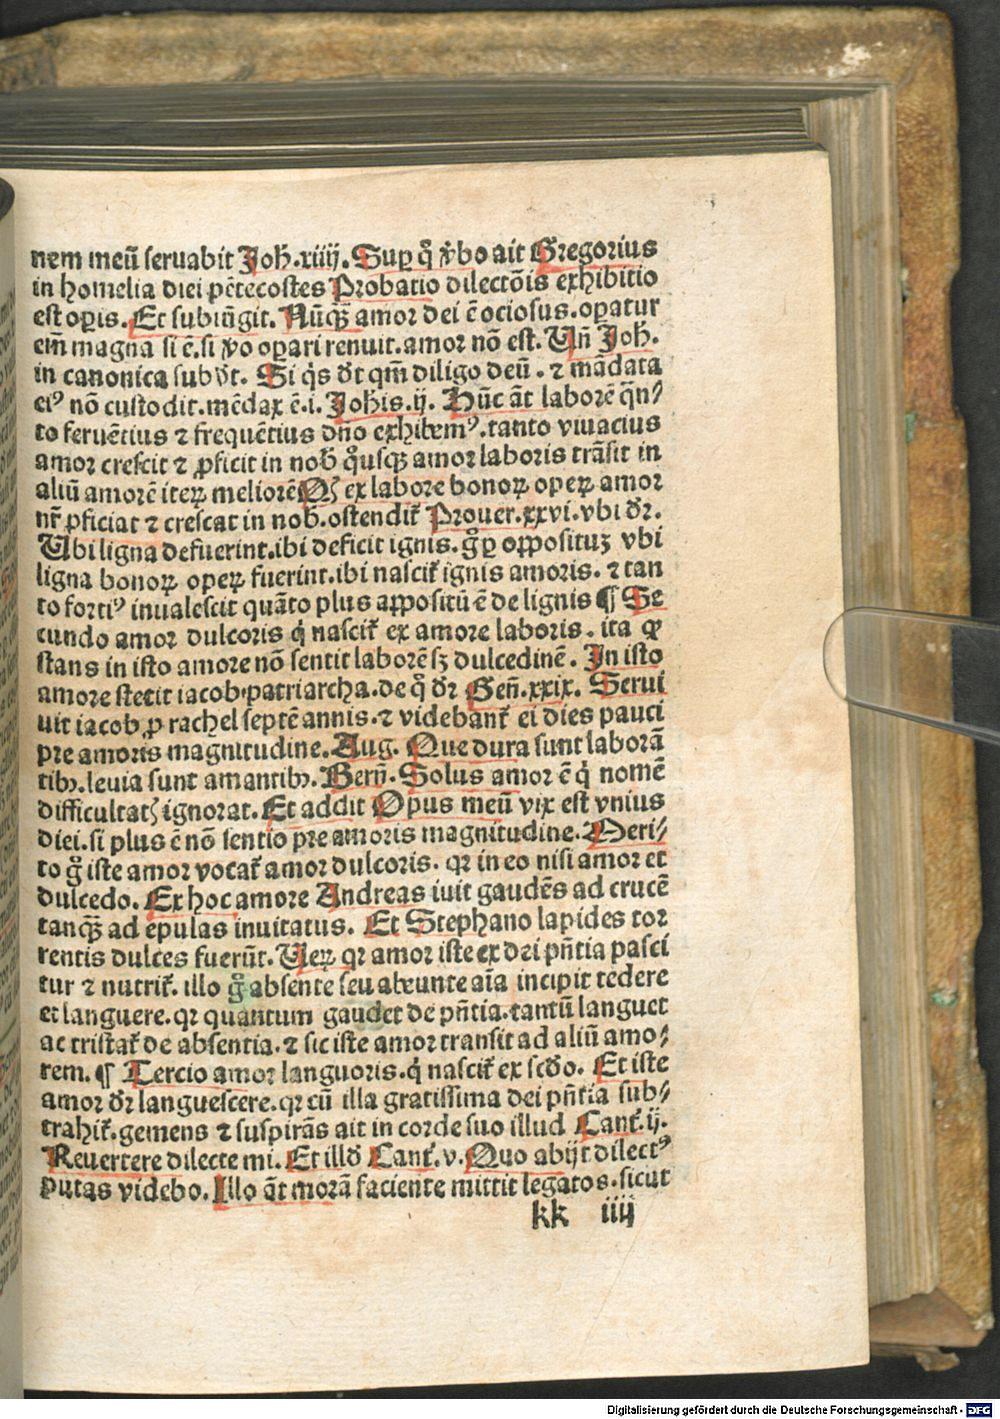 nem meū seruabit Joħ.xiiij. Suꝑ qͦ ꝟbo ait Gregorius
in homelia diei pētecostes Probatio dilectōis exhibitio
est oꝑis. Et subiūgit. Nūqꝫ amor dei ē ociosus. oꝑatur
em̄ magna si ē. si ꝟo oꝑari renuit. amor nō est. Vn̄ Joħ.
in canonica sub dr̄t. Si qͥs dr̄t qm̄ diligo deū. ⁊ mādata
eiꝰ nō custodit. mēdax ē. i. Joħis. ij. Hūc āt laborē qn̄⸗
to feruētius ⁊ frequētius dn̄o exhibemꝰ. tanto viuacius
amor crescit ⁊ ꝓficit in nob̄ qͦusqꝫ amor laboris trāsit in
aliū amorē iteꝝ meliorē Qꝭ ex labore bonoꝝ opeꝝ amor
nr̄ ꝓficiat ⁊ crescat in nob̄. ostendit᷑ Prouer.xxvi. vbi dr̄.
Vbi ligna defuerint. ibi deficit ignis. gͦ ꝑ oppositū vbi
ligna bonoꝝ opeꝝ fuerint. ibi nascit᷑ ignis amoris. ⁊ tan
to fortiꝰ inualescit quāto plus appositū ē de lignis ¶ Se
cundo amor dulcoris qͥ nascit᷑ ex amore laboris. ita ꝙ
stans in isto amore nō sentit laborē sꝫ dulcedinē. In isto
amore stetit iacob patriarcha. de qͦ dr̄ Gen̄.xxix. Serui
uit iacob ꝓ rachel septē annis. ⁊ videbant᷑ ei dies pauci
pre amoris magnitudine. Aug. Que dura sunt laborā
tibꝫ. leuia sunt amantibꝫ. Bern̄. Solus amor ē qͥ nomē
difficultatꝭ ignorat. Et addit Opus meū vix est vnius
diei. si plus ē nō sentio pre amoris magnitudine. Meri⸗
to gͦ iste amor vocat᷑ amor dulcoris. qꝛ in eo nisi amor et
dulcedo. Ex hoc amore Andreas iuit gaudēs ad crucē
tanqꝫ ad epulas inuitatus. Et Stephano lapides tor
rentis dulces fuerūt. Veꝝ qꝛ amor iste ex dei pn̄tia pasci
tur ⁊ nutrit᷑. illo gͦ absente seu abeunte aīa incipit tedere
et languere. qꝛ quantum gaudet de pn̄tia. tantū languet
ac tristat᷑ de absentia. ⁊ sic iste amor transit ad aliū amo⸗
rem. ¶ Tercio amor languoris. qͥ nascit᷑ ex scd̄o. Et iste
amor dr̄ languescere. qꝛ cū illa gratissima dei pn̄tia sub⸗
trahit᷑. gemens ⁊ suspirās ait in corde suo illud Cant᷑. ij.
Reuertere dilecte mi. Et illd̄ Cant᷑. v. Quo abijt dilectꝰ
putas videbo. Illo āt morā faciente mittit legatos. sicut
kk iiij
Digitalisierung gefördert durch die Deutsche Forschungsgemeinschaft - DFG